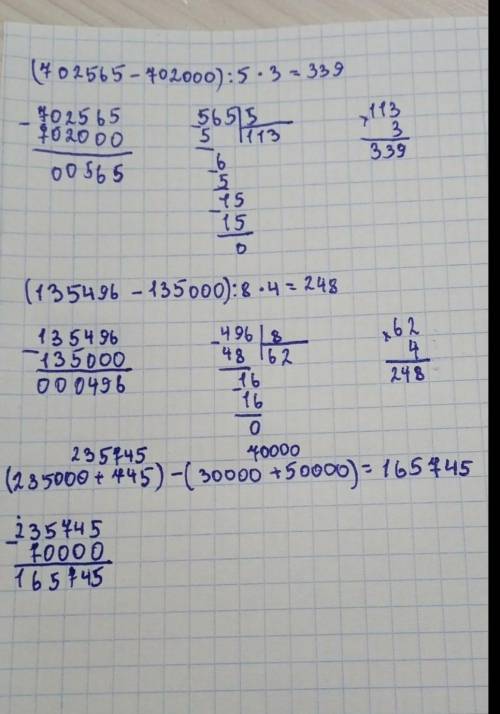 (702565-702000):5·3=339
-702565
702000
00565
-565|5
5 113
-6
5
-15
15
0
×113
3
339
(135496-135000):8·4=248
-135496
135000
000496
-496|8
48 62
-16
16
0
×62
4
248
235745 70000
(235000+745)-(30000+50000)=165745
-235745
70000
165745